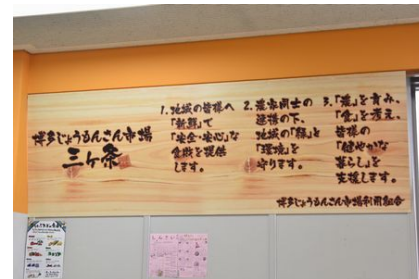 博多じょうもんさん市場
三ヶ条
1.地域の皆様へ
「新鮮」で
「安全・安心」な
食材を提供
します。
2.農家同士の
連携の下、
地域の「緑」と
「環境」を
守ります。
3.「農」を育み、
「食」を考え、
皆様の
「健やかな
暮らし」を
支援します。
博多じょうもんさん市場利用組合